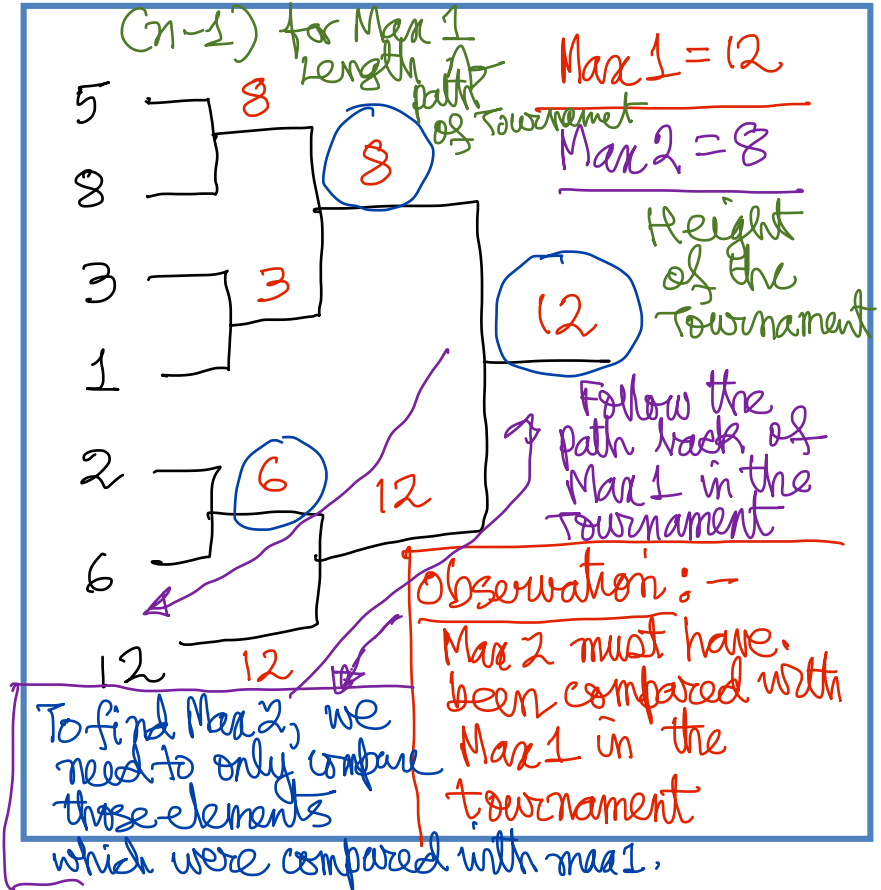 (n-1) for Max 1
Length of
path
of Tournamet
Max 1 = 12
Max 2 = 8
5
8
8
8
3
3
1
Height
of the
Tournament
12
2
6
12
6
12
12
Follow the
path back of
Max 1 in the
Tournament
Observation :-
Max 2 must have.
been compared with
Max 1 in the
tournament
To find Max 2, we
need to only compare
those elements
which were compared with max 1.